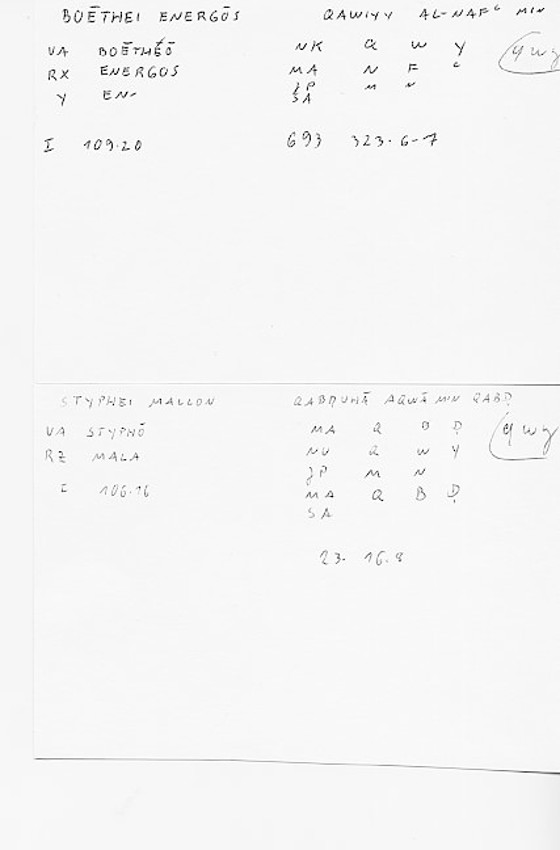 BOĒTHEI ENERGŌS QAWIYY AL-NAFʿ MIN
VA BOĒTHEŌ NK Q W Y qwy
RX ENERGOS MA N F ʿ
Y EN- JP M N
SA
I 109.20 693 323.6-7
STYPHEI MALLON QABḌUHĀ AQWĀ MIN QABḌ
VA STYPHŌ MA Q B Ḍ qwy
RZ MALA NU Q W Y
JP M N
I 106.16 MA Q B Ḍ
SA
23. 16.8